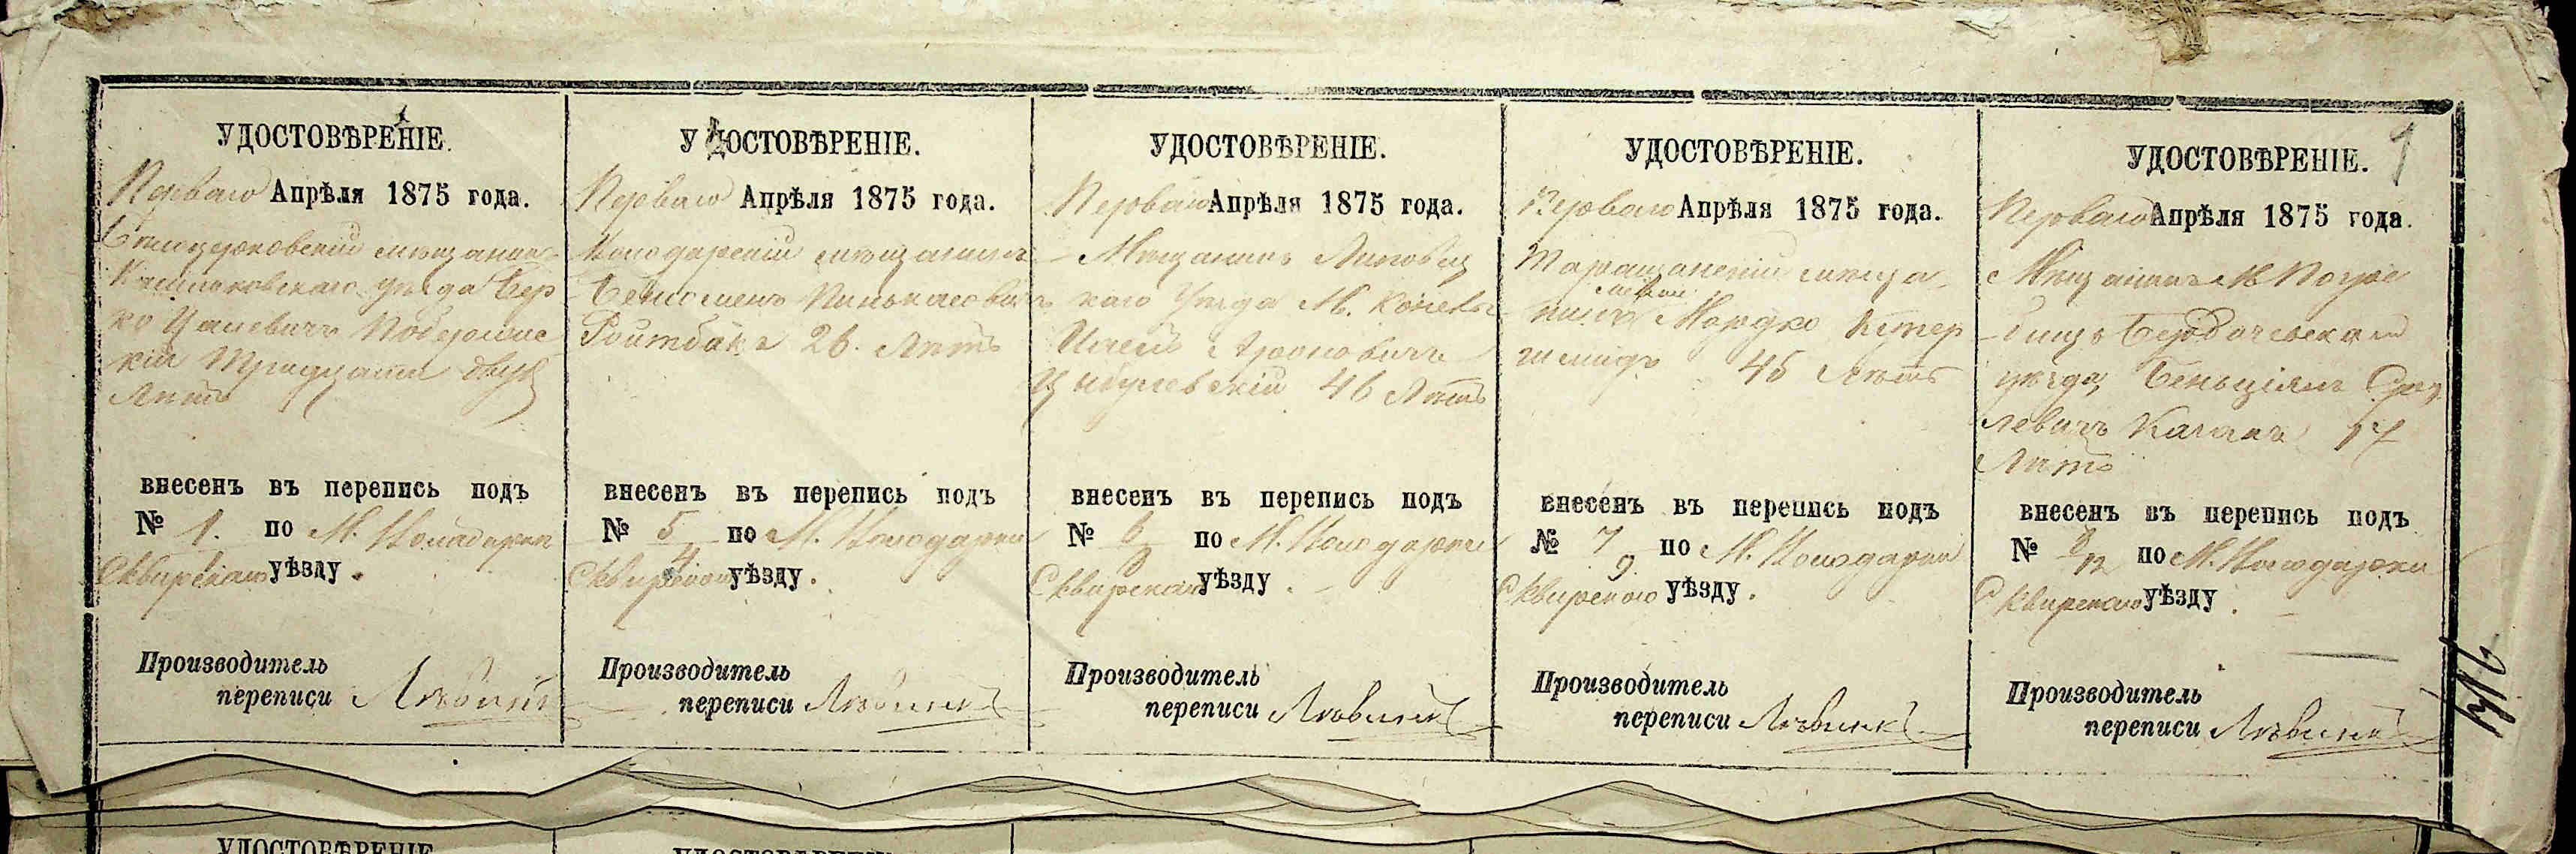 УДОСТОВѢРЕНІЕ.
Перваго Апрѣля 1875 года.
Бѣлоцерковскій мѣщанинъ
уѣзда Бер
ко
кій Тридцати двухъ
Лѣтъ
внесенъ въ перепись подъ
№ 1. по М. Володарки
Сквирскаго уѣзду.
Производитель
переписи
УДОСТОВѢРЕНІЕ.
Перваго Апрѣля 1875 года.
Володарскій мѣщанинъ
Пинькасовичъ
Ройтбакъ 26. Лѣтъ
внесенъ въ перепись подъ
№ 5/4 по М. Володарки
Сквирскаго уѣзду.
Производитель
переписи
УДОСТОВѢРЕНІЕ.
Перваго Апрѣля 1875 года.
Мѣщанинъ Липовец
каго Уѣзда М.
Ароновичъ
Цыбулевскій 46 Лѣтъ
внесенъ въ перепись подъ
№ 6 по М. Володарки
Сквирскаго уѣзду.
Производитель
переписи
УДОСТОВѢРЕНІЕ.
Перваго Апрѣля 1875 года.
Таращанскій мѣща
нинъ Мордко Купер
шмидъ 45 Лѣтъ
внесенъ въ перепись подъ
№ 7/9 по М. Володарки
Сквирскаго уѣзду.
Производитель
переписи
УДОСТОВѢРЕНІЕ.
1
Перваго Апрѣля 1875 года.
Мѣщанинъ М. Погре
бищъ Бердичевскаго
уѣзда Беньціянъ Сру
левичъ Каганъ 17
Лѣтъ
внесенъ въ перепись подъ
№ 8/12 по М. Володарки
Сквирскаго уѣзду.
Производитель
переписи
УДОСТОВѢРЕНІЕ